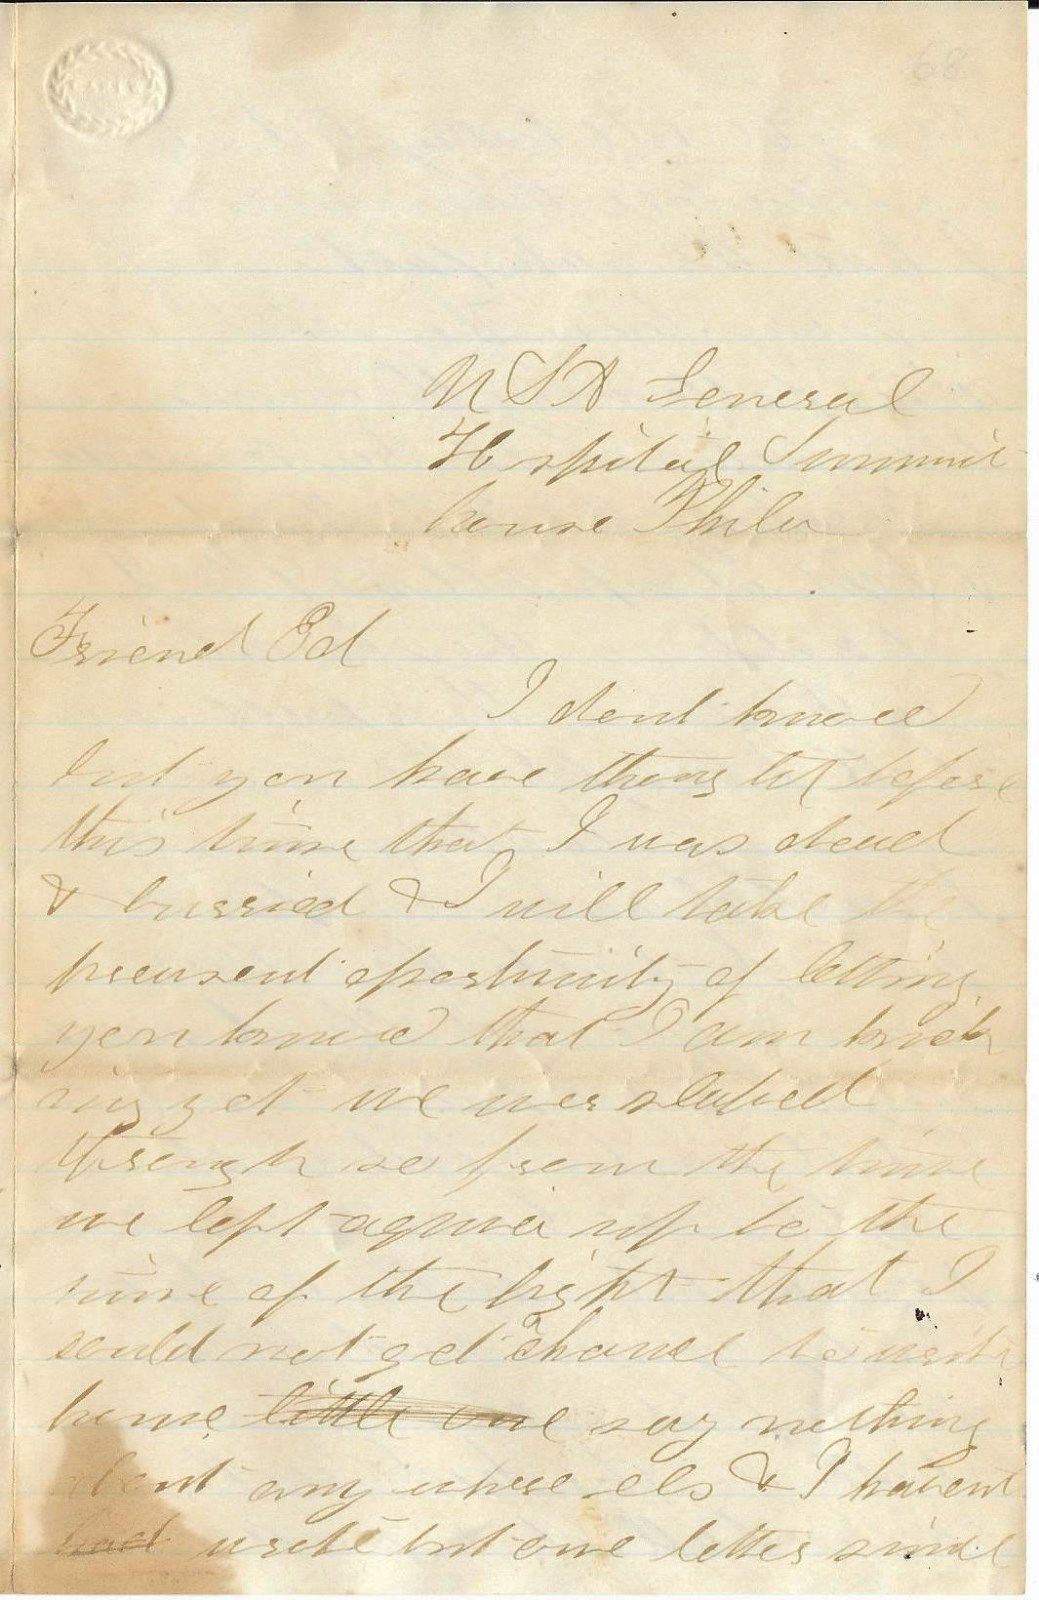 68
U S A General
Hospital Summit
house Phila
Friend Ed
I dont know
but you have thought before
this time that I was dead
& burried & I will take the
preasent oportunity of letting
you know that I am kick
ing yet we was
through so from the time
we left aquia up to the
time of the fight that I
could not get a chance to write
home little one say nothing
about any where els & I havent
had wrote but one letter since